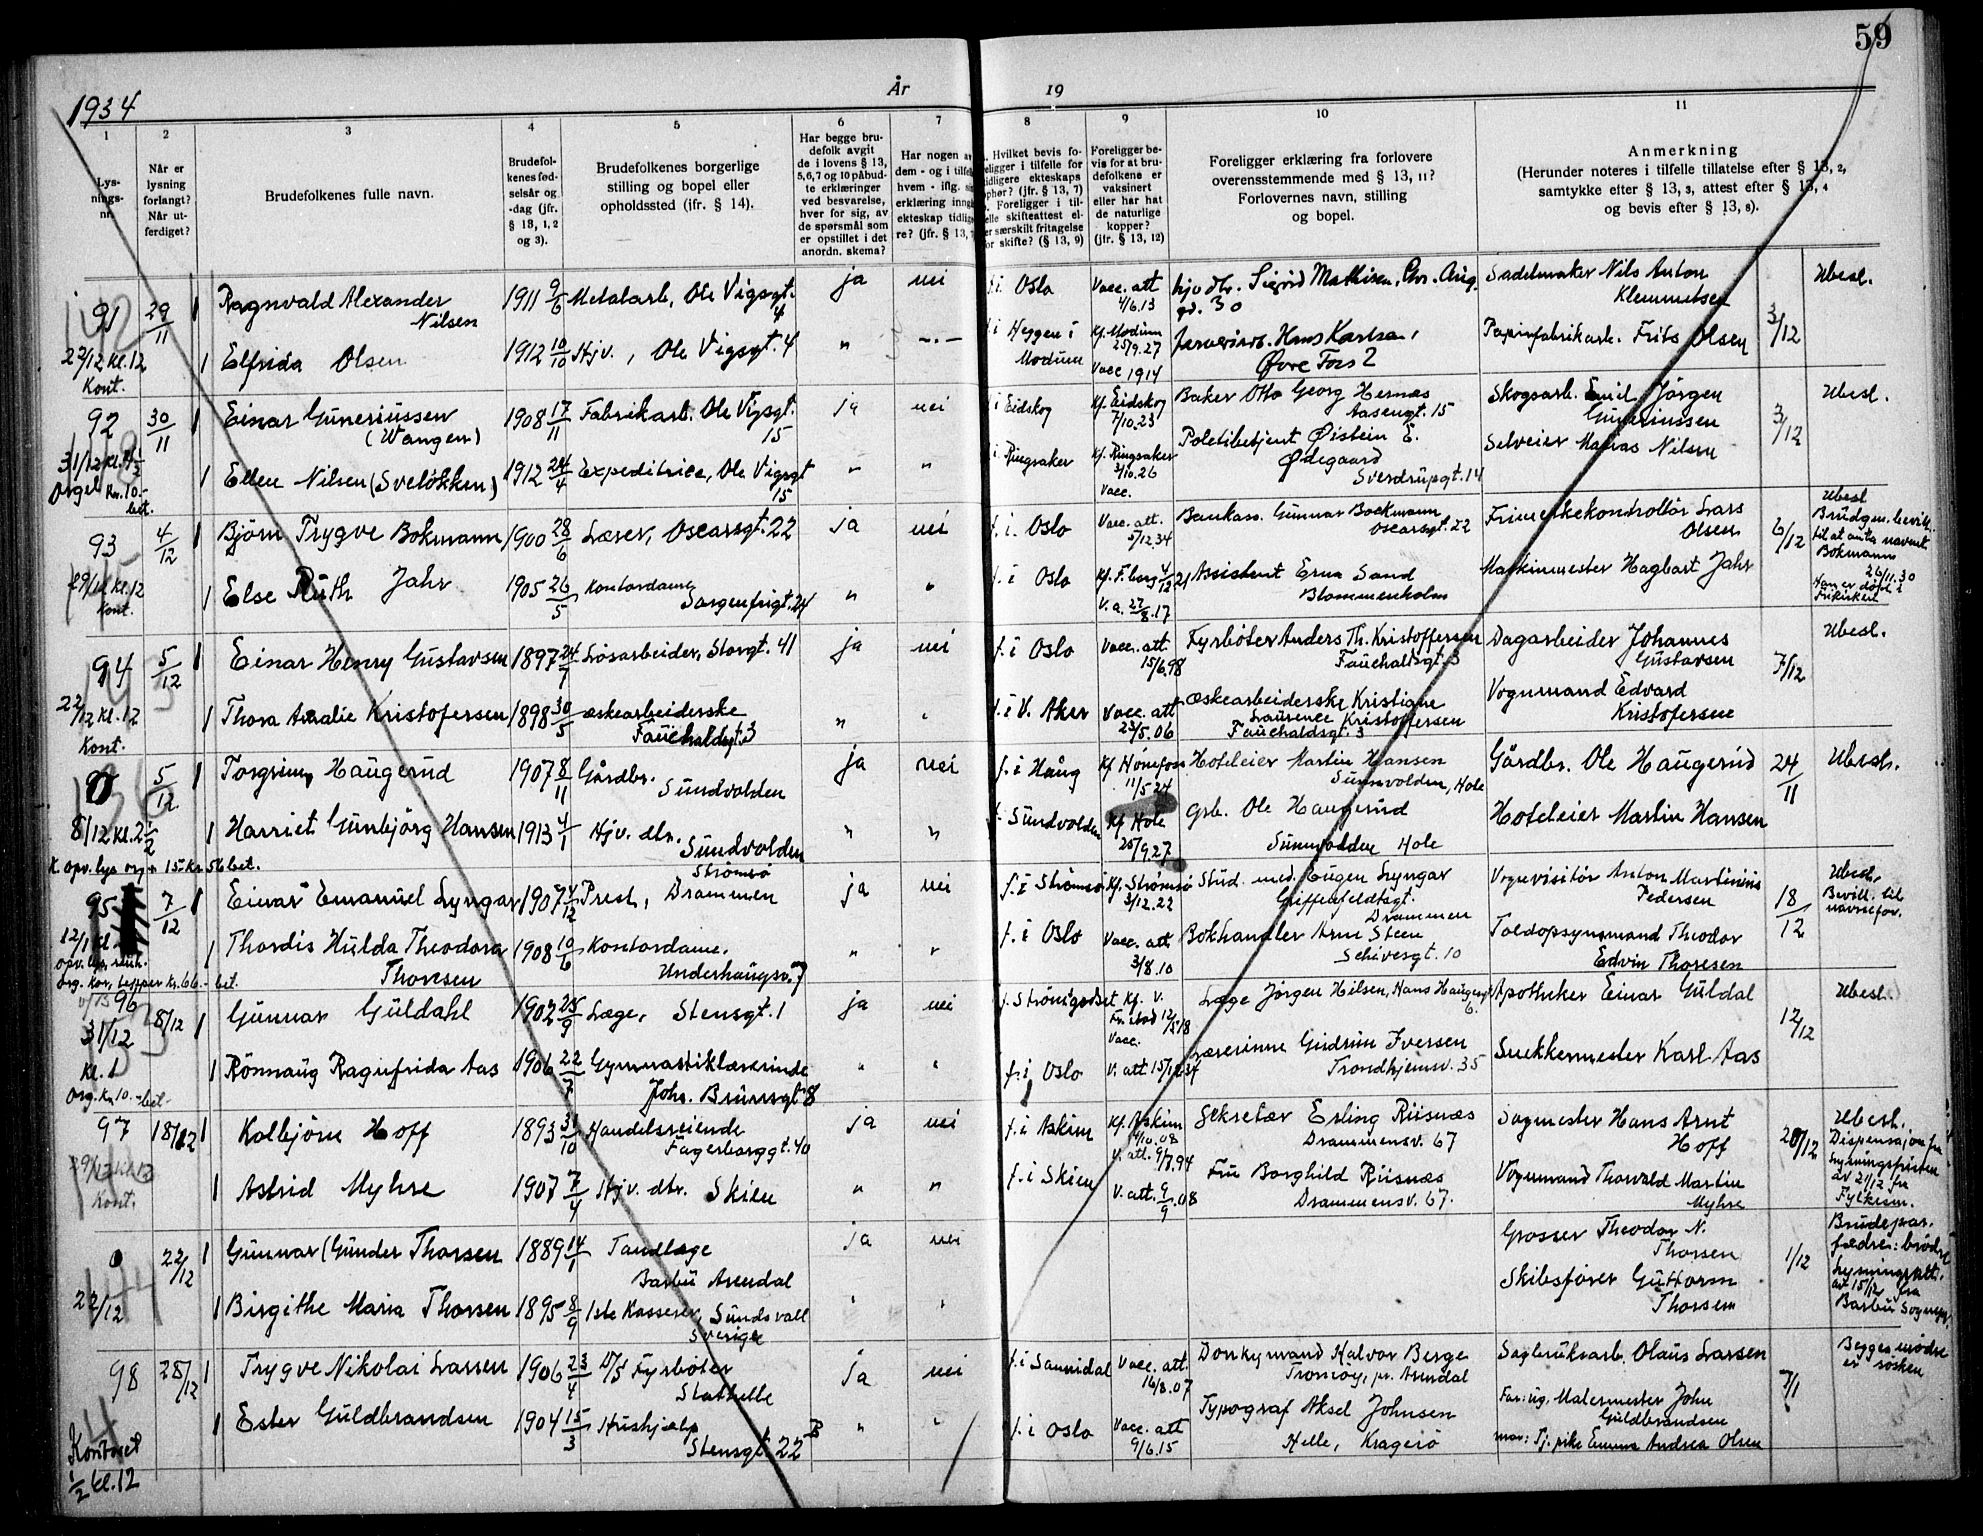 59
1934
År
19
1
2
3
4
5
6
7
8
9
10
11
Lys-
nings-
nr.
Når er
lysning
forlangt?
Når ut-
ferdiget?
Brudefolkenes fulle navn.
Brudefol-
kenes fød-
selsår og
-dag (jfr.
§ 13, 1, 2
og 3).
Brudefolkenes borgerlige
stilling og bopel eller
opholdssted (ifr. § 14).
Har begge bru-
defolk avgit
de i lovens § 13,
5, 6, 7 og 10 påbud-
te erklæringer
ved besvarelse,
hver for sig, av
de spørsmål som
er opstillet i det
anordn. skema?
Har nogen av
dem - og i tilfelle
hvem - iflg. sin
erklæring inngått
ekteskap tidlige-
re? (jfr. § 13, 7
Hvilket bevis fo-
religger i tilfelle for
tidligere ekteskaps
ophør? (jfr. § 13, 7)
Foreligger i til-
felle skifteattest el-
ler særskilt fritagelse
for skifte? (§ 13, 9)
Foreligger be-
vis for at bru-
defolkene er
vaksinert
eller har hat
de naturlige
kopper?
(jfr. § 13, 12)
Foreligger erklæring fra forlovere
overensstemmende med § 13, 11?
Forlovernes navn, stilling
og bopel.
Anmerkning
(Herunder noteres i tilfelle tillatelse efter § 13, 2,
samtykke efter § 13, 3, attest efter § 13, 4
og bevis efter § 13, 8).
91 29/11 1 Ragnvald Alexander Nilsen 1911 9/6 Metalarb., Ole Vigsgt. 4 ja nei f. i Oslo Vacc. att 4/6.13 hjv. dtr. Sigrid Mathisen, Chr. Aug. gd. 30 Sadelmaker Nils Anton Klemmetsen 3/12 Ubesl.
27/12 kl. 12 Kont.
1 Elfrida Olsen 1912 10/10 Hjv., Ole Vigsgt. 4 " -"- f. i Heggen i Modum Kf. Modum 25/9.27 Vacc 1914 Hans Karlsen, Øvre Foss 2 Papirfabrikarb. Frits Olsen
92 30/11 1 Einar Guneriussen (Wangen) 1908 17/11 Fabrikarb. Ole Vigsgt. 15 ja nei f. i Eidskog Kf. Eidskog 7/10.23 Baker Otto Georg Hernæs Aasengt. 15 Skogsarb. Emil Jørgen Guneriussen 3/12 Ubesl.
31/12 kl. 4 1/2 Orgel kr. 10.- bet.
1 Ellen Nilsen (Sveløkken) 1912 24/4 Expeditrice, Ole Vigsgt 15 " " i Ringsaker Kf. Ringsaker 3/10.26 Vacc. Politibetjent Øistein E. Ødegaard Sverdrupgt. 14 Selveier Matias Nilsen
93 4/12 1 Bjørn Trygve Bokmann 1900 28/6 Lærer, Oscarsgt. 22 ja nei f. i. Oslo Vacc. att. 5/12.34 Bankass. Gunnar Bockmann Oscarsgt. 22 Frimerkekontrollør Lars Olsen 6/12 Ubesl Brudgm. bevill. til at anta navnet Bokmann 26/11.30 Han er døpt i Frikirken
29/12 kl. 12 Kont.
1 Else Ruth Jahr 1905 26/5 Kontordame Sorgenfrigt. 24 " " f. i Oslo Kf. F.borg 4/12 21 V. a. 27/8.17 Assistent Erna Sand Blommenholm Maskinmester Hagbart Jahr
94 5/12 1 Einar Henry Gustavsen 1897 24/7 Løsarbeider, Storgt. 41 ja nei f. i Oslo Vacc. att 15/6.98 Fyrbøter Anders Th. Kristoffersen Fauchaldsgt. 3 Dagarbeider Johannes Gustavsen 7/12 Ubesl.
22/12 kl. 12 Kont.
1 Thora Amalie Kristofersen 1898 30/5 æskearbeiderske Fauchaldsgt. 3 " " f. i V. Aker Vacc. att 23/5.06 Æskearbeiderske Kristiane Laurence Kristoffersen Fauchaldsgt. 3 Vognmand Edvard Kristofersen
0 5/12 1 Torgrim Haugerud 1907 8/11 Gårdbr. Sundvolden ja nei f. i Haug Kf Hønefoss 11/5 24 Hoteleier Martin Hansen Sundvolden, Hole Gårdbr. Ole Haugerud 24/11 Ubesl.
8/12 kl. 2 1/2
1 Harriet Gunbjørg Hansen 1913 4/1 Hjv. dtr. Sundvolden " " f. Sundvolden Kf Hole 25/9.27 Grb. Ole Haugerud Sundvolden Hole Hoteleier Martin Hansen
K. opv. lys org. 15 Kr 56 bet.
95 7/12 1 Einar Emanuel Lyngar 1907 4/12 Prest, Strømsø Drammen ja nei f. i Strømsø Kf. Strømsø 3/12.22 Stud. med. Eugen Lyngar Griffenfeldtsgt. Drammen Vognvisitør Anton Martinius Pedersen 18/12 Ubesl. Bevill. til navnefor.
12/1 kl
1 Thordis Hulda Theodora Thoresen 1908 10/6 Kontordame, Underhaugsv. 7 " " f. i Oslo Vacc. att 3/8.10 Bokhandler Arne Steen Schivesgt. 10 Toldopsynsmand Theodor Edvin Thoresen
Org. Kor, tepper Kr. 66.- bet.
96 8/12 1 Gunnar Guldahl 1902 25/9 Læge, Stensgt. 1 ja nei f. Strömgodset Kf. V. Fr.stad 12/5 18 Vacc. Læge Jørgen Hilsen, Hans Haugesgt 6. Apotheker Einar Guldal 12/12 Ubesl.
31/12 kl. 1 Org. Kr. 10.- bet -
1 Rönnaug Ragnfrida Aas 1906 22/7 Gymnastiklærerinde Johs. Brunsgt 8 " " f. i Oslo V. att 15/12 34 Lærerinne Gudrun Iversen Trondhjemsv. 35 Snekkermester Karl Aas
97 18/12 1 Kolbjørn Hoff 1893 31/10 Handelsreisende Fagerborggt. 40 ja nei f. i Askim Kf. Askim 4/10.08 V. att. 9/7.94 Sekretær Erling Riisnæs Drammensv. 67 Sagmester Hans Arnt Hoff 20/12 Ubesl. Dispensasjon fra lysningsfristen av 21/12 fra Fylkesm.
29/12 kl. 12 Kont.
1 Astrid Myhre 1907 7/4 Hjv. dtr. Skien " " f. i Skien V. att. 9/9.08 Fru Borghild Riisnæs Drammensv. 67. Vognmand Thorvald Martin Myhre
0 22/12 1 Gunnar (Gunder Thorsen 1889 14/1 Tandlæge Barbu Arendal ja nei Grosser Theodor N. Thorsen 1/12 Brudepar. fædre: brødre Lysningsatt. av 15/12 fra Barbu Sogmpr.
22/12
1 Birgithe Maria Thorsen 1895 8/9 1ste Kasserer, Sundsvall Sverige " " Skibsfører Guttorm Thorsen
98 28/12 1 Trygve Nikolai Larsen 1906 23/4 D/S Fyrbøter Stathelle ja nei f. i Sannidal Vacc. att. 16/8.07 Donkymand Halvor Berge Tromøy, pr. Arendal Sagbruksarb. Olaus Larsen 7/1 Begges mødre er søsken
Kontoret 1/2 kl. 12
1 Ester Guldbrandsen 1904 15/3 Hushjelp Stensgt. 22 B " " f. i Oslo Vacc. att 9/6.15 Typograf Aksel Johnsen Helle, Kragerø Far: ug. Malermester John Guldbrandsen mor: Tj. pike Emma Andrea Olsen